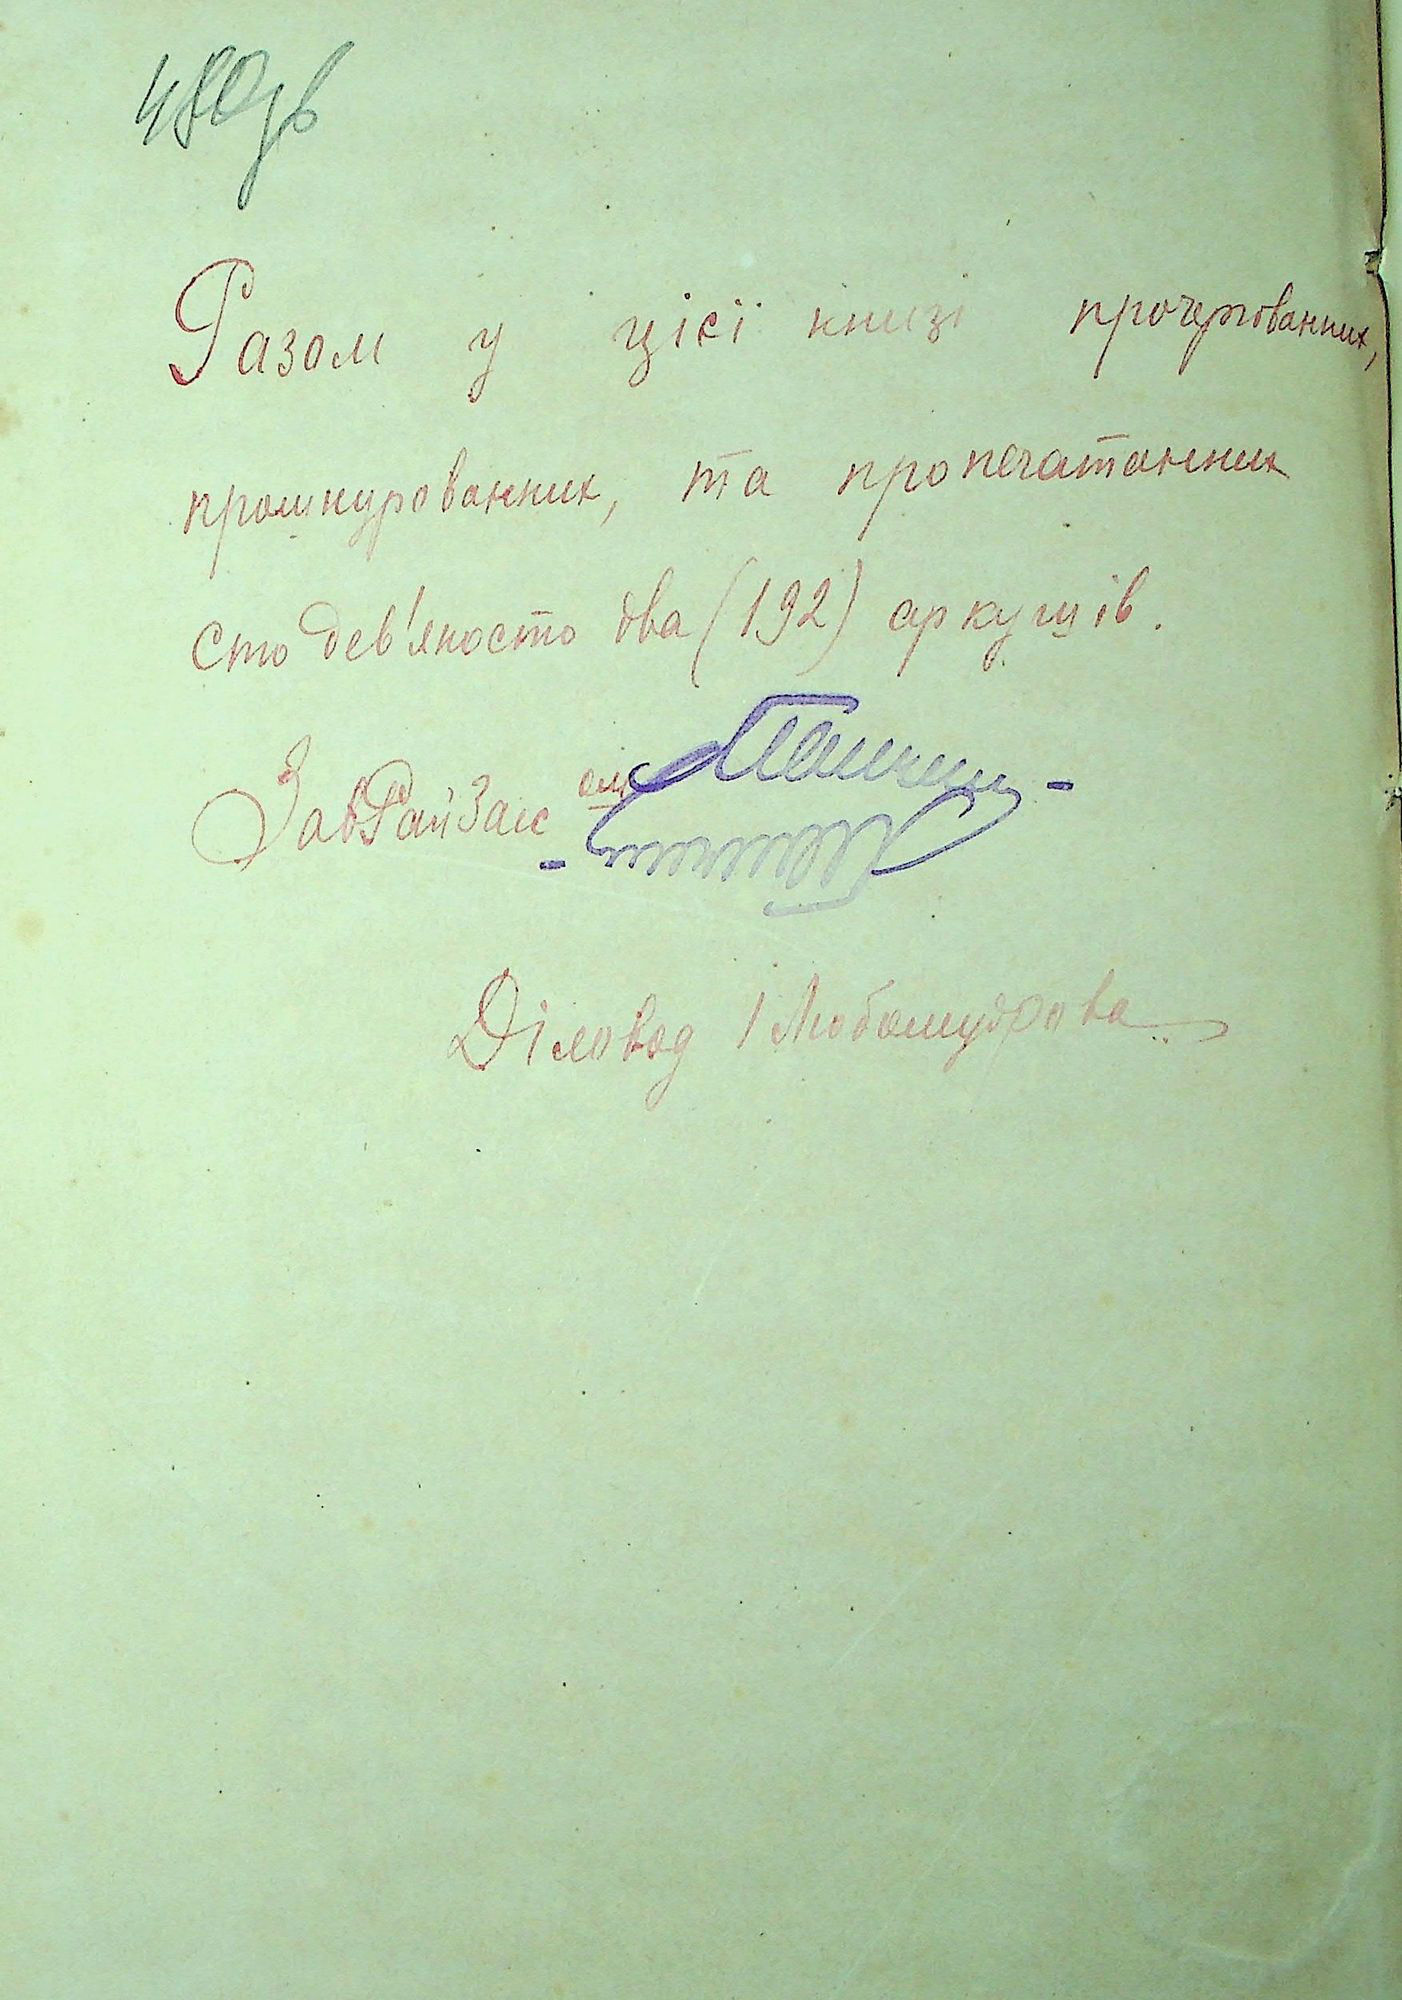 480зв
Разом у цієї книзі прочертованних,
прошнурованних, та пропечатанних
сто дев'яносто два (192) аркушів.
ЗавРайЗагс
Діловод / Любомудрова